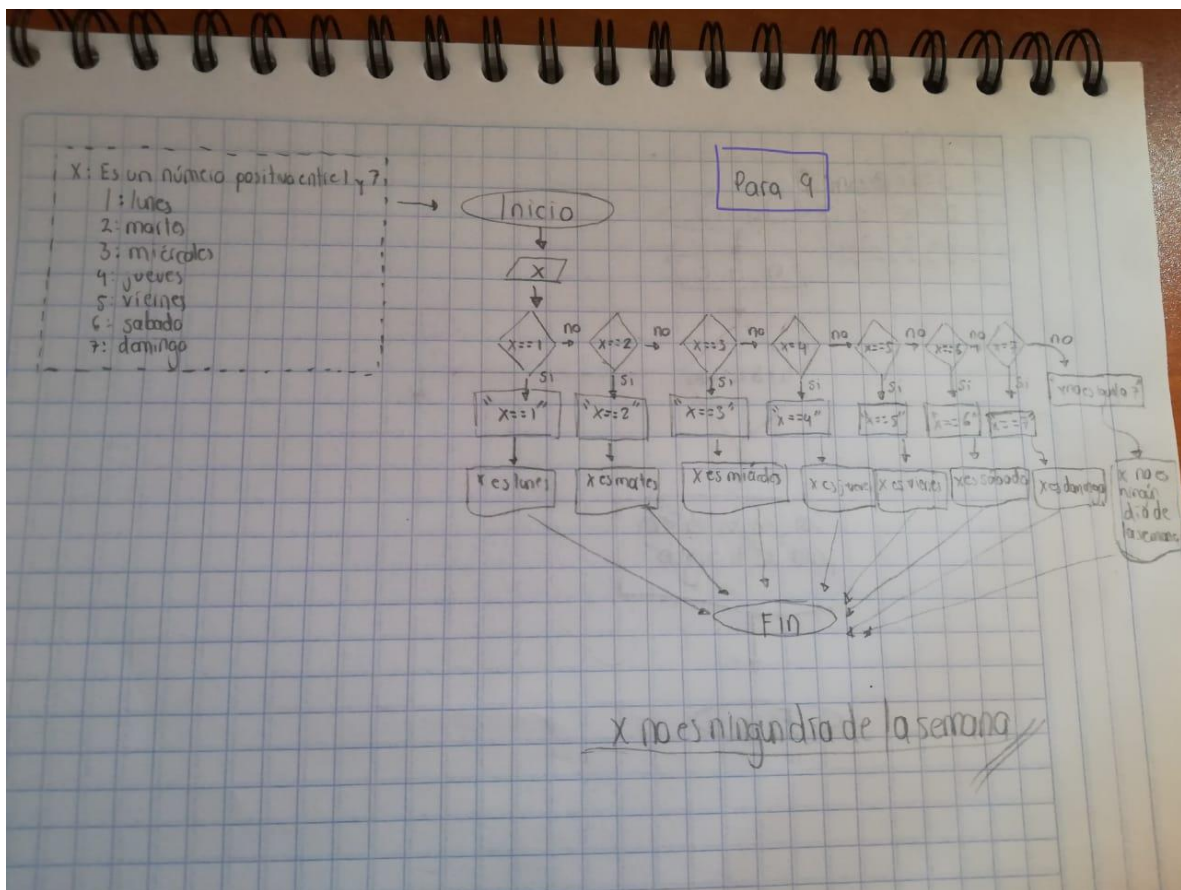 X: Es un número positivo entre 1 y 7.
1: lunes
2: martes
3: miércoles
4: jueves
5: viernes
6: sabado
7: domingo
Para 9
Inicio
X
X==1 no X==2 no X==3 no X=4 no X==5 no X==6 no X==7 no
si si si si si si si
"X==1" "X==2" "X==3" "X==4" "X==5" "X==6" "X==7"
X es lunes
X es martes
X es miércoles
X es jueves
X es viernes
X es sábado
X es domingo
X no es
día de
la semana
Fin
X no es ningun dia de la semana